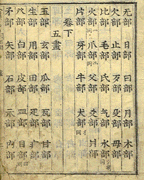 无部 日部 曰部 月部 木部
欠部 止部 歹部 殳部 毋部
比部 毛部 氏部 气部 水部
火部 爪部 父部 爻部 爿部
片部 牙部 牛部 犬部
卷下
五畫
玉部 玄部 瓜部 瓦部 甘部
生部 用部 田部 疋部 疒部
癶部 白部 皮部 皿部 目部
矛部 矢部 石部 示部 禸部